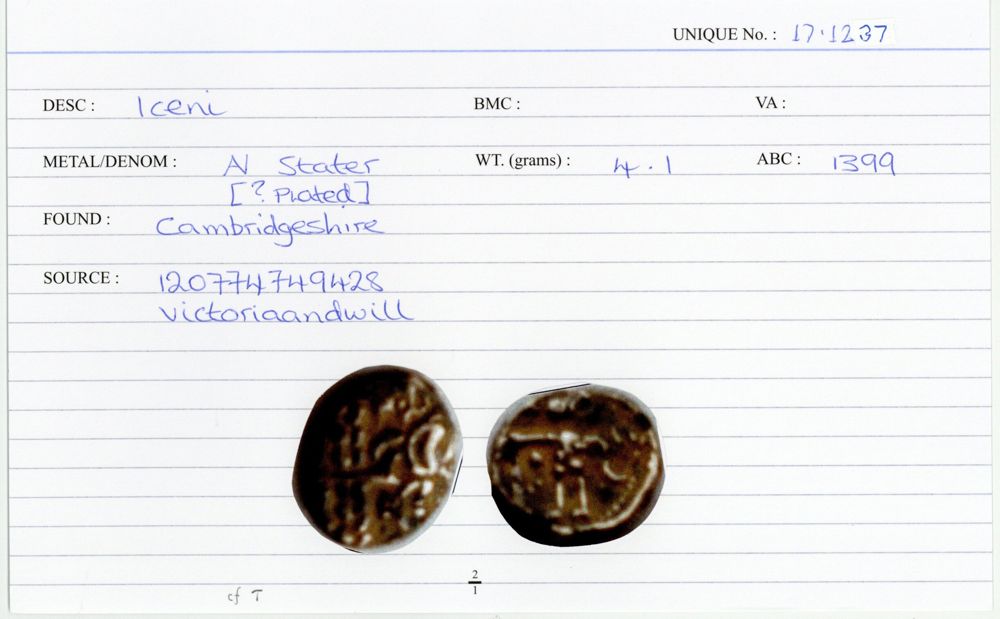 UNIQUE No. : 17.1237
DESC : Iceni BMC : VA :
METAL/DENOM : N Stater WT. (grams) : 4.1 ABC : 1399
[? Plated]
FOUND : Cambridgeshire
SOURCE : 120774749428
victoriaandwill
2
1
cf T